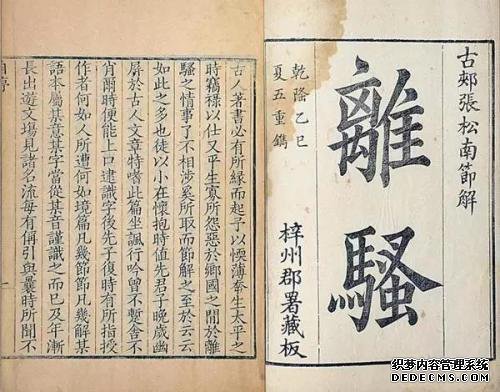 古郟張松南節解
離騷
乾隆乙巳
夏五重鐫
梓州郡署藏板
古人著書必有所緣而起予以薄生太平之
時竊祿以仕又平生寡所怨惡於鄉國之間於離
騷之情事了不相涉奚所取而節解之至於云云
如此之多也徒以小在懷抱時值先君子晚歲幽
屏於古人文章特嗜此篇坐諷行吟曾不暫舍不
肖爾時便能上口逮識字後先子復時有所指授
作者何如人所遭何如境篇凡幾節節凡幾解某
語本屬某意某字當從某音謹識之而已及年漸
長出遊文塲見諸名流每有稱引與曩時所聞不
织梦内容管理系统
DEDECMS.COM